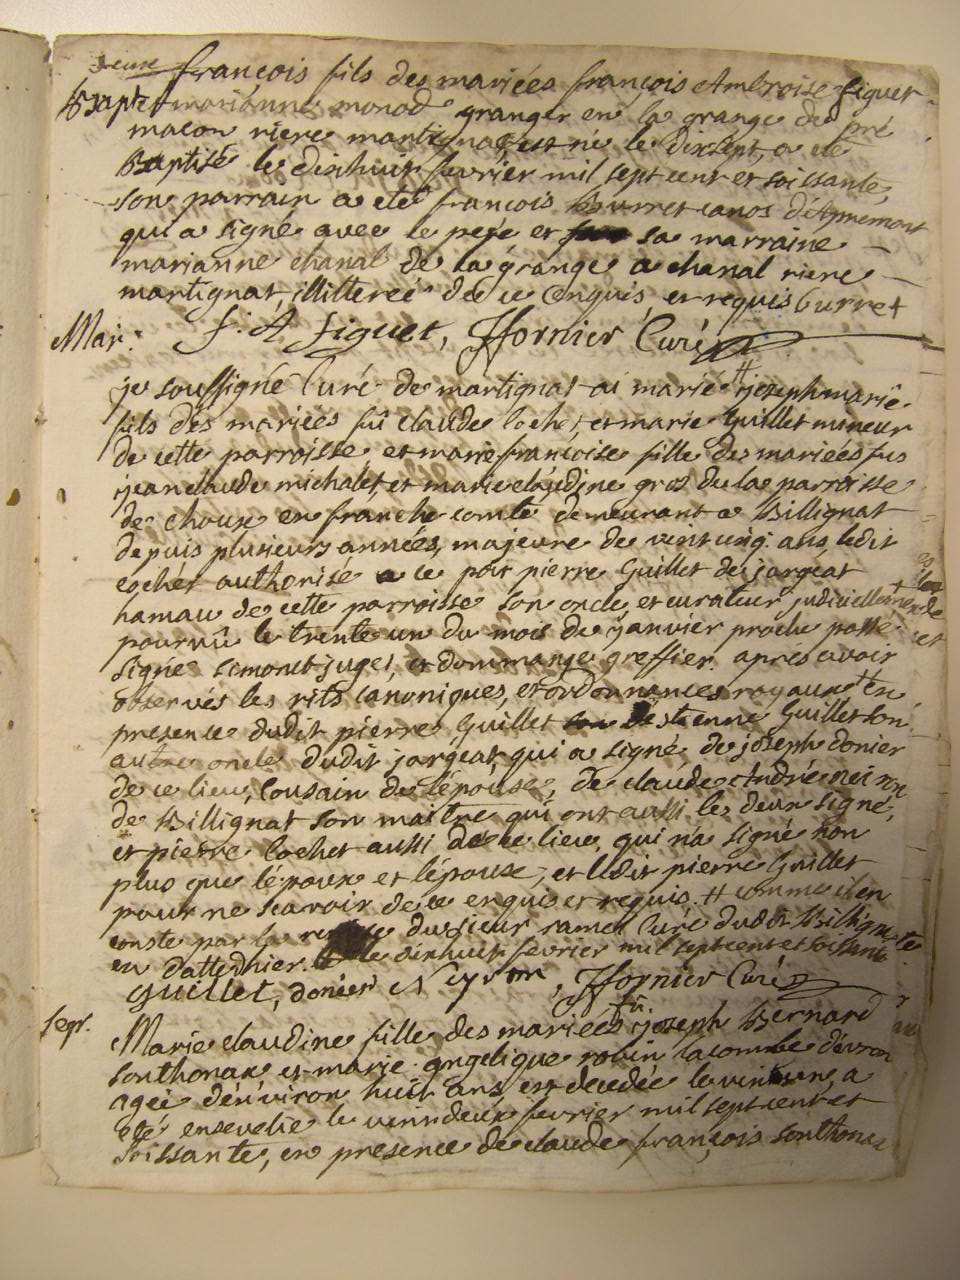 françois fils des mariées françois Ambroise figuet
Bapt. et marianne monod granger en la grange de pré
macon riere martignat, est né le dixsept, a été
Baptisé le dixhuit fevrier mil sept cent et soissante,
son parrain a été françois Burret d'Apremont
qui a signé avec le pere et sa marraine
marianne chanal de la grange a chanal riere
martignat, illitereé de ce enquis et requis burret
f: A figuet, Jfornier Curé
Mar:
je soussigné Curé de martignat ai marié # joseph marie
fils des mariées fû claude cochet, et marie Guillet mineur
de cette parroisse et marie françoise fille des mariées fus
jean claude michalet, et marie claudine gros de la parroisse
de choux en franche comté demeurant a Billignat
depuis plusieurs années, majeure de vint cinq ans, ledit
cochet authorisé a ce par pierre Guillet de jargeat
hamau de cette parroisse son oncle, et curateur judiciellement
pourvû le trente un du mois de janvier proche passé
signé simonet juge, et dommange greffier apres avoir
observés les rits canoniques, et ordonnances royaux + en
presence dudit pierre Guillet d'estienne Guillet son
autre oncle dudit jargeat, qui a signé de joseph donier
de ce lieu, Cousain de l'épouse, de claude Andrée neiron
de Billignat son maitre qui ont aussi les deux signé,
et pierre Cochet aussi de ce lieu, qui n'a signé non
plus que l'époux et l'épouse, et ledit pierre Guillet
pour ne scavoir de ce enquis et requis. # comme il en
conste par la remise du sieur ramel Curé dudit Billignat
en datte d'hier. le dixhuit fevrier mil sept cent et soissante
Guillet, donier Neyron, Jfornier Curé
sepr. Marie claudine fille des mariées fû joseph Bernard
sonthonax et marie angelique robin lacombe d'évron
agée d'environ huit ans, est decedée le vint un, a
été ensevelie le vinndeux fevrier mil sept cent et
soissante, en presence de claude françois sonthonax